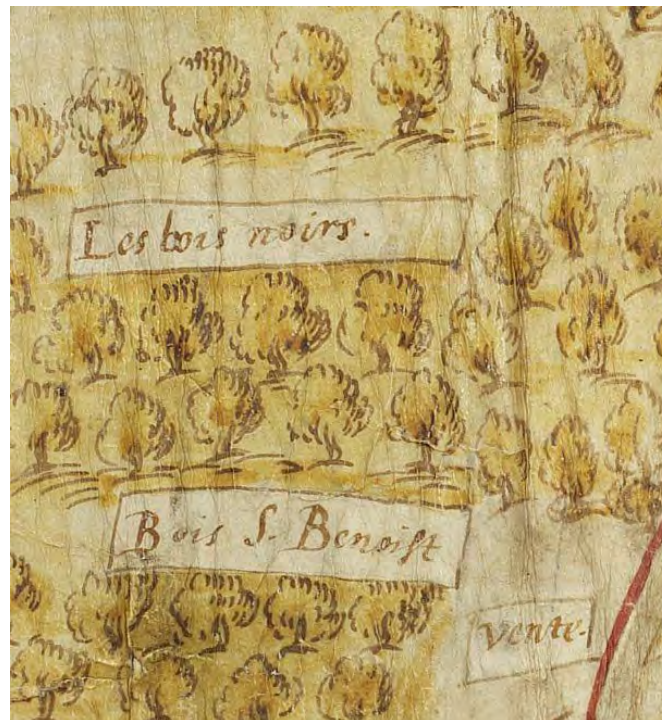 Les bois noirs.
Bois S. Benoist
vente.